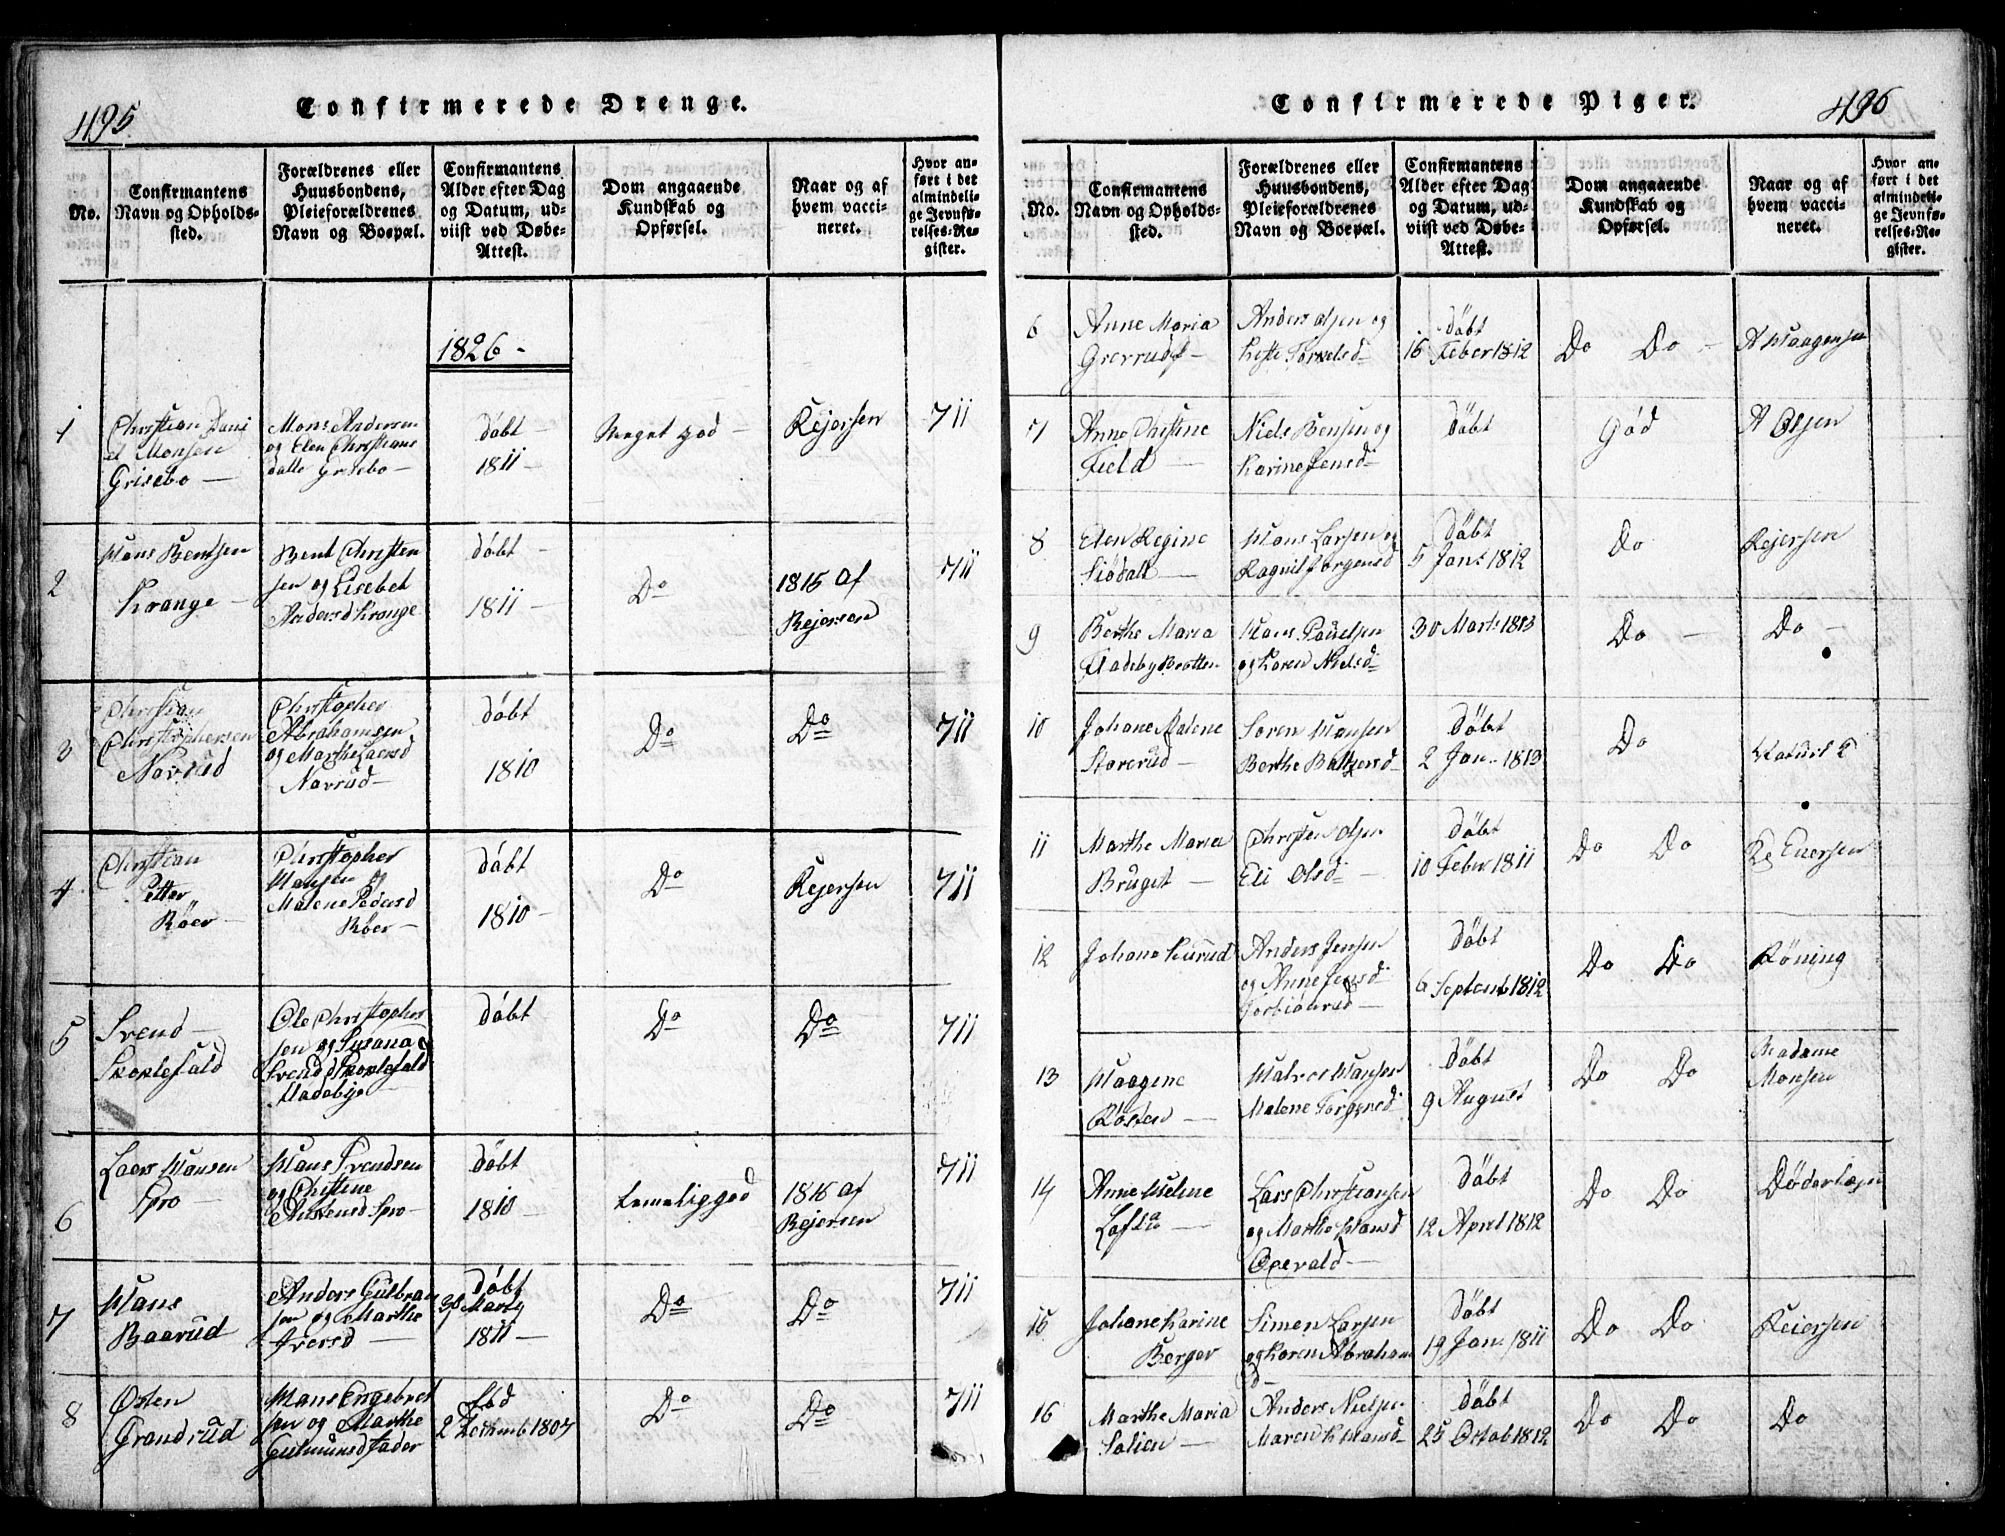 495
Confirmerede Drenge.
No.
Confirmantens
Navn og Opholds-
sted.
Forældrenes eller
Huusbondens,
Pleieforældrenes
Navn og Boepæl.
Confirmantens
Alder efter Dag
og Datum, ud-
viist ved Døbe-
Attest.
Dom angaaende
Kundskab og
Opførsel.
Naar og af
hvem vacci-
neret.
Hvor an-
ført i det
almindeli-
ge Jevnfø-
relses-Re-
gister.
1826 -
1
Christian Dani
el Monsen
Grisebo -
Mons Andersen
og Elen Christians
datte Grisebo -
döbt -
1811 -
Meget god -
Rejersen
711
2
Hans Bentsen
Krange -
Bent Christen
sen og Lisebet
Andersd Krange
döbt -
1811 -
Do
1815 af
Rejersen
711
3
Christian
Christophersen
Navrud
Christopher
Abrahamsen
og Marthe Laersd
Navrud -
döbt
1810
Do
Do
711
4
Christian
Petter
Röer -
Christopher
Hansen og
Malene Pedersd
Röer -
döbt
1810 -
Do
Rejersen
711
5
Svend -
Skoklefald
Ole Christopher
sen og Susana
Svends Skoklefald
döbt
Do
Do
711
6
Laers Hansen
Spro -
Hans Svendsen
og Christine
Spro -
döbt
1810 -
Temelig god
1816 af
Rejersen
711
7
Hans
Baarud
Anders Gulbran
sen og Marthe
Iversd -
Döbt
Marty
1811 -
Do
Do
711
8
Østen
Grandrud
Hans Engebret
sen og Marthe
Gulmunds
Död
Do
Do
711
496
Confirmerede Piger.
No.
Confirmantens
Navn og Opholds-
sted.
Forældrenes eller
Huusbondens,
Pleieforældrenes
Navn og Boepæl.
Confirmantens
Alder efter Dag
og Datum, ud-
viist ved Døbe-
Attest.
Dom angaaende
Kundskab og
Opførsel.
Naar og af
hvem vacci-
neret.
Hvor an-
ført i det
almindeli-
ge Jevnfø-
relses-Re-
gister.
6
Anne Maria
Anders Olsen og
Torkelsd -
döbt
16 Feber 1812
Do Do -
A Haagensen
7
Anne Christine
Field -
Niels Bensen og
Karine Jensd -
Döbt
God
A Olsen
8
Elen Regine
Siödalt -
Hans Larsen og
Ragnil Jörgensd
Döbt
5 Jan: 1812
Do
Rejersen
9
Berthe Maria
Fladeby Brotten
Hans Pouelsen
og Karen Nielsd -
30 Marts 1813
Do -
Do -
10
Johane Malene
Storerud -
Soren Hansen
Berthe Baltzersd -
Döbt
2 Jan - 1813
Do
11
Marthe Maria
Bruget -
Christen Olsen
Eli Olsd -
Döbt
10 Feber 1811
Do Do
12
Johane
Anders Jensen
og Anne Jensd -
Döbt
6 Septemb 1812
Do Do
Röning
13
Haagene
Rosten -
Halvor Hansen
Malene Torgersd
Döbt
9 August
Do Do
Madame
Monsen
14
Anne Helene
Loftu -
Lars Christiansen
og Marthe Hansd
Oxevald -
Döbt
12 April 1812
Do Do
Döderlegn
15
Johane Karine
Berger
Simen Larsen
og Karen Abraham
d -
Döbt
19 Jan - 1811
Do Do
Reiersen
16
Marthe Maria
Solien -
Anders Nielsen
Maren Hansd -
Döbt
25 Octob 1812
Do Do
Do